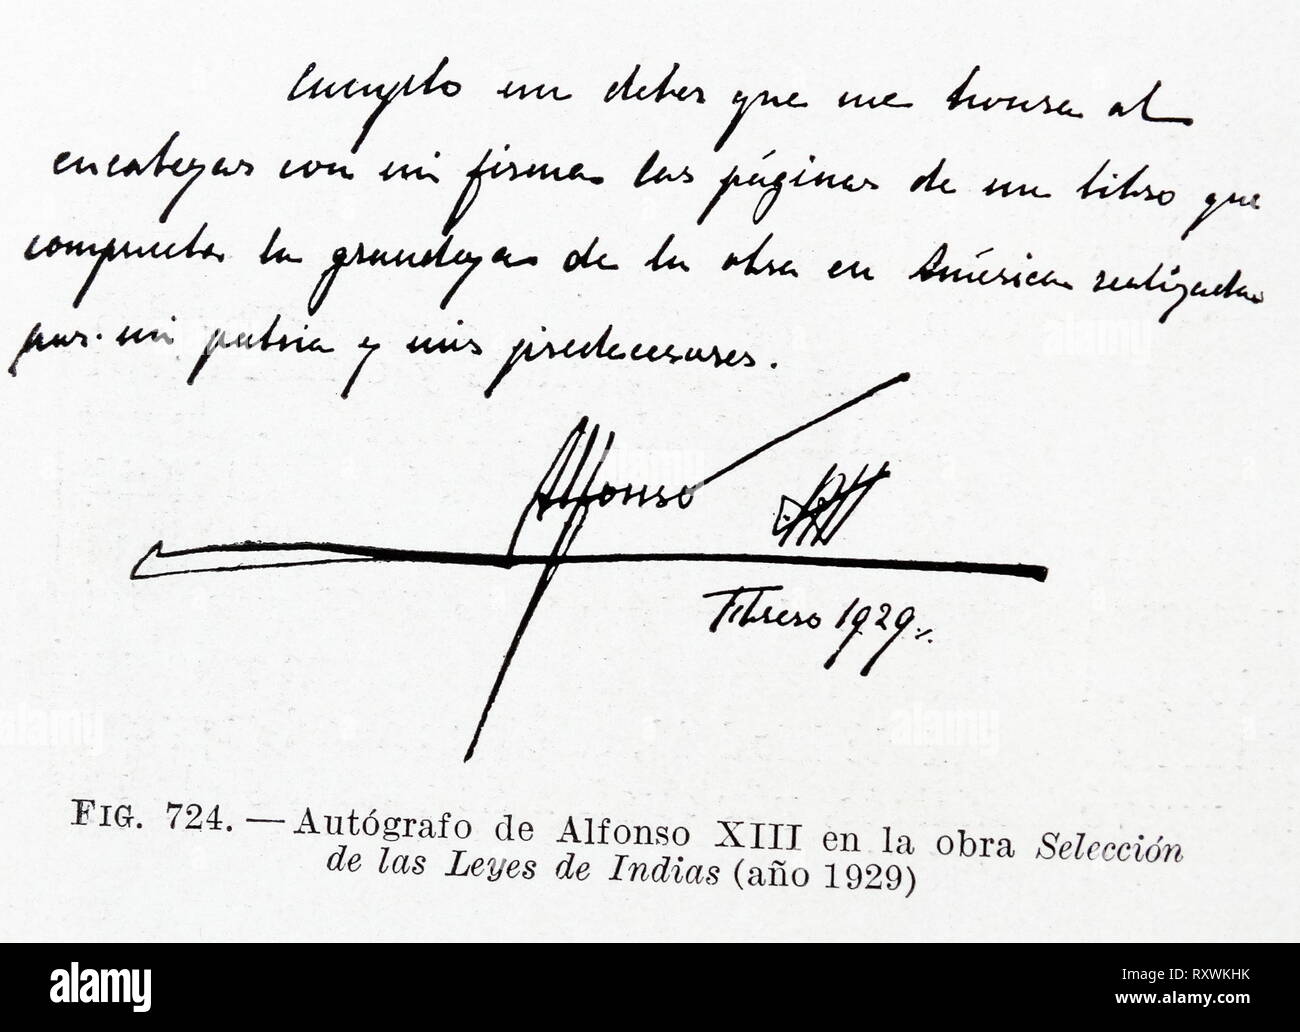 Cumplo un deber que me honra al
encabezar con mi firma las páginas de un libro que
comprueba la grandeza de la obra en América realizada
por mi patria y mis predecesores.
Alfonso
Febrero 1929
FIG. 724. — Autógrafo de Alfonso XIII en la obra Selección
de las Leyes de Indias (año 1929)
alamy
Image ID: RXWKHK
www.alamy.com